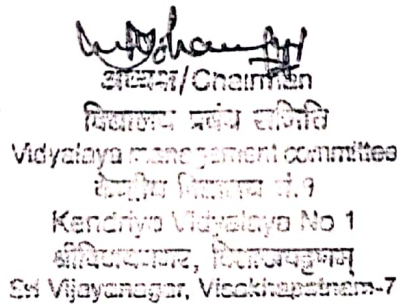 अध्यक्ष/Chairman
विद्यालय प्रबंध समिति
Vidyalaya management committee
केन्द्रीय विद्यालय नं.1
Kendriya Vidyalaya No 1
श्रीविजयनगर, विशाखापट्टणम्
Sri Vijayanagar, Visakhapatnam-7